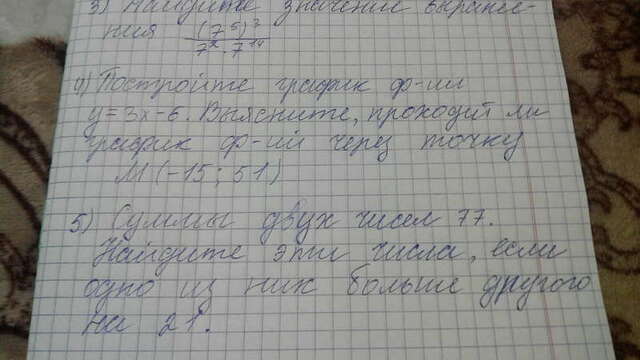 3) Найдите значение выраже-
ния (7⁵)² / 7⁷ · 7
4) Постройте график ф-ии
y = 3x - 6. Выясните, проходит ли
график ф-ии через точку
М (-15; 51)
5) Сумма двух чисел 77.
Найдите эти числа, если
одно из них больше другого
на 27.